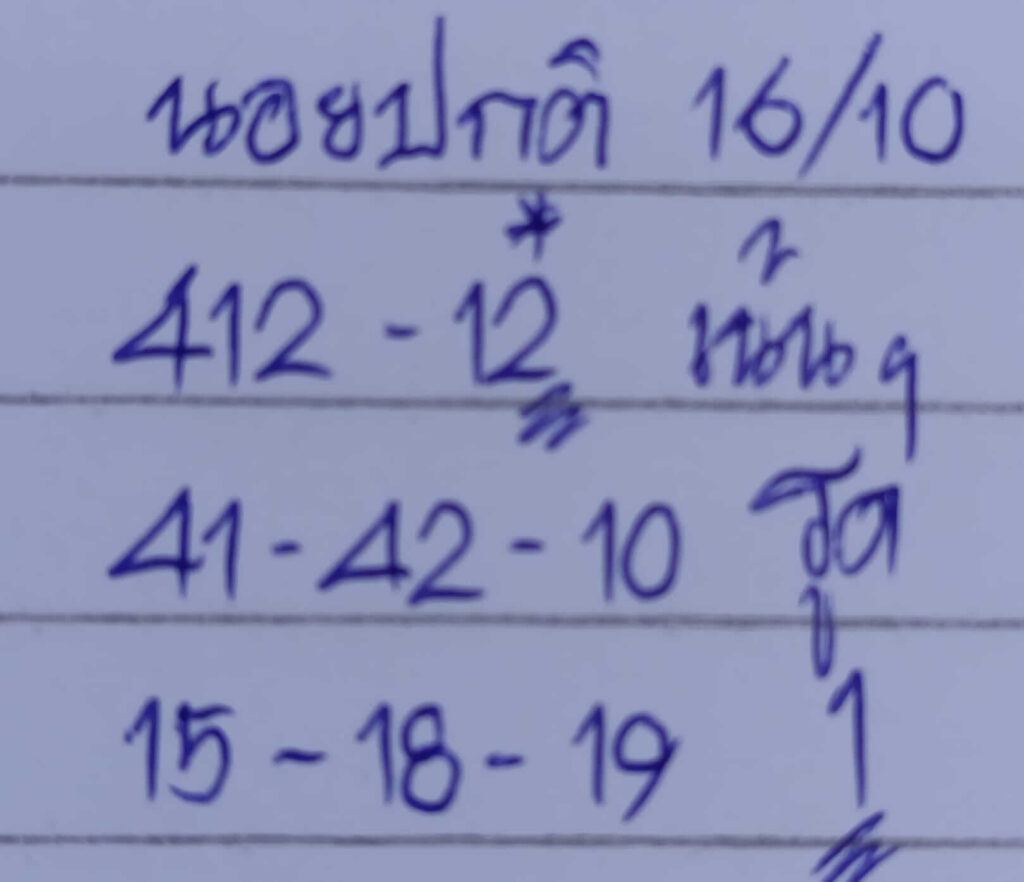 นอยปกติ 16/10
412 - 12* เน้นๆ
41 - 42 - 10 รูด
15 - 18 - 19 1